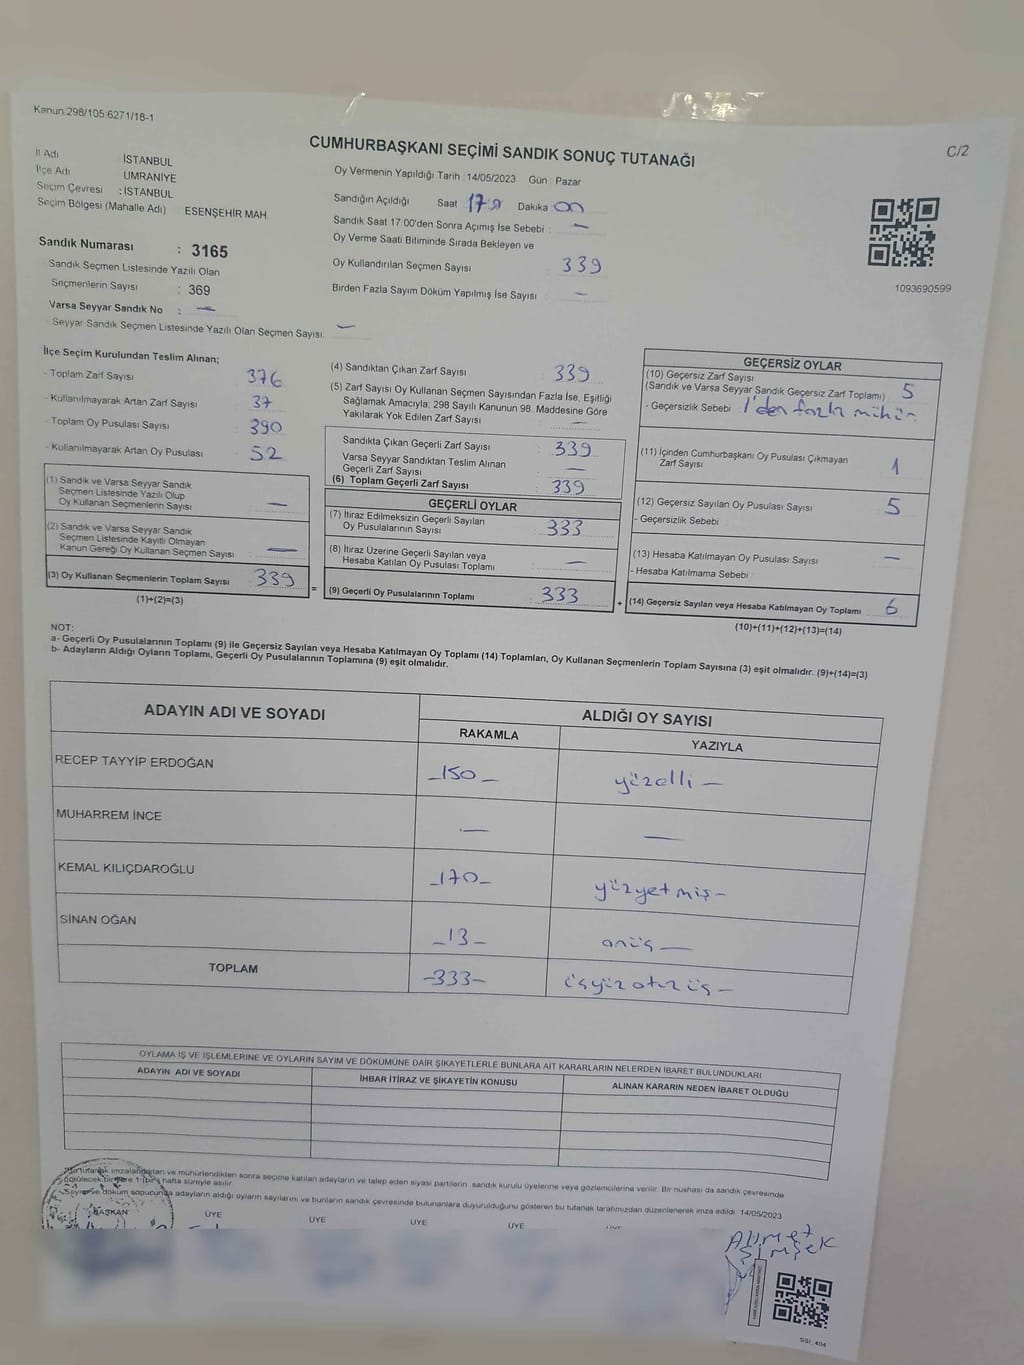 Kanun:298/105:6271/18-1
CUMHURBAŞKANI SEÇİMİ SANDIK SONUÇ TUTANAĞI
C/2
İl Adı İSTANBUL
İlçe Adı ÜMRANİYE
Seçim Çevresi : İSTANBUL
Seçim Bölgesi (Mahalle Adı) ESENŞEHİR MAH
Sandık Numarası : 3165
Sandık Seçmen Listesinde Yazılı Olan
Seçmenlerin Sayısı : 369
Varsa Seyyar Sandık No : —
Seyyar Sandık Seçmen Listesinde Yazılı Olan Seçmen Sayısı: —
Oy Vermenin Yapıldığı Tarih :14/05/2023 Gün : Pazar
Sandığın Açıldığı Saat Dakika
Sandık Saat 17:00'den Sonra Açımış İse Sebebi : —
Oy Verme Saati Bitiminde Sırada Bekleyen ve
Oy Kullandırılan Seçmen Sayısı : 339
Birden Fazla Sayım Döküm Yapılmış İse Sayısı : —
1093690599
İlçe Seçim Kurulundan Teslim Alınan;
- Toplam Zarf Sayısı 376
- Kullanılmayarak Artan Zarf Sayısı 37
- Toplam Oy Pusulası Sayısı 390
- Kullanılmayarak Artan Oy Pusulası 52
(1) Sandık ve Varsa Seyyar Sandık
Seçmen Listesinde Yazılı Olup
Oy Kullanan Seçmenlerin Sayısı —
(2) Sandık ve Varsa Seyyar Sandık
Seçmen Listesinde Kayıtlı Olmayan
Kanun Gereği Oy Kullanan Seçmen Sayısı —
(3) Oy Kullanan Seçmenlerin Toplam Sayısı 339
(1)+(2)=(3)
=
(4) Sandıktan Çıkan Zarf Sayısı 339
(5) Zarf Sayısı Oy Kullanan Seçmen Sayısından Fazla İse, Eşitliği
Sağlamak Amacıyla; 298 Sayılı Kanunun 98. Maddesine Göre
Yakılarak Yok Edilen Zarf Sayısı : —
Sandıkta Çıkan Geçerli Zarf Sayısı : 339
Varsa Seyyar Sandıktan Teslim Alınan
Geçerli Zarf Sayısı : —
(6) Toplam Geçerli Zarf Sayısı : 339
GEÇERLİ OYLAR
(7) İtiraz Edilmeksizin Geçerli Sayılan
Oy Pusulalarının Sayısı : 333
(8) İtiraz Üzerine Geçerli Sayılan veya
Hesaba Katılan Oy Pusulası Toplamı : —
(9) Geçerli Oy Pusulalarının Toplamı : 333
+
GEÇERSİZ OYLAR
(10) Geçersiz Zarf Sayısı
(Sandık ve Varsa Seyyar Sandık Geçersiz Zarf Toplamı) 5
- Geçersizlik Sebebi : 1'den fazla mühür
(11) İçinden Cumhurbaşkanı Oy Pusulası Çıkmayan
Zarf Sayısı 1
(12) Geçersiz Sayılan Oy Pusulası Sayısı 5
- Geçersizlik Sebebi :
(13) Hesaba Katılmayan Oy Pusulası Sayısı —
- Hesaba Katılmama Sebebi :
(14) Geçersiz Sayılan veya Hesaba Katılmayan Oy Toplamı : 6
(10)+(11)+(12)+(13)=(14)
NOT:
a- Geçerli Oy Pusulalarının Toplamı (9) ile Geçersiz Sayılan veya Hesaba Katılmayan Oy Toplamı (14) Toplamları, Oy Kullanan Seçmenlerin Toplam Sayısına (3) eşit olmalıdır. (9)+(14)=(3)
b- Adayların Aldığı Oyların Toplamı, Geçerli Oy Pusulalarının Toplamına (9) eşit olmalıdır.
ADAYIN ADI VE SOYADI ALDIĞI OY SAYISI
RAKAMLA YAZIYLA
RECEP TAYYİP ERDOĞAN —150— yüzelli —
MUHARREM İNCE — —
KEMAL KILIÇDAROĞLU —170— yüzyetmiş—
SİNAN OĞAN —13— onüç —
TOPLAM —333— üçyüzotuzüç —
OYLAMA İŞ VE İŞLEMLERİNE VE OYLARIN SAYIM VE DÖKÜMÜNE DAİR ŞİKAYETLERLE BUNLARA AİT KARARLARIN NELERDEN İBARET BULUNDUKLARI
ADAYIN ADI VE SOYADI İHBAR İTİRAZ VE ŞİKAYETİN KONUSU ALINAN KARARIN NEDEN İBARET OLDUĞU
tutanak imzalandıktan ve mühürlendikten sonra seçime katılan adayların ve talep eden siyasi partilerin sandık kurulu üyelerine veya gözlemcilerine verilir. Bir nüshası da sandık çevresinde
görülecek bir yere 1 (bir) hafta süreyle asılır.
Sayım ve döküm sonucunda adayların aldığı oyların sayılarını ve bunların sandık çevresinde bulunanlara duyurulduğunu gösteren bu tutanak tarafımızdan düzenlenerek imza edildi. 14/05/2023
BAŞKAN ÜYE ÜYE ÜYE ÜYE ÜYE
Ahmet
ŞİMŞEK